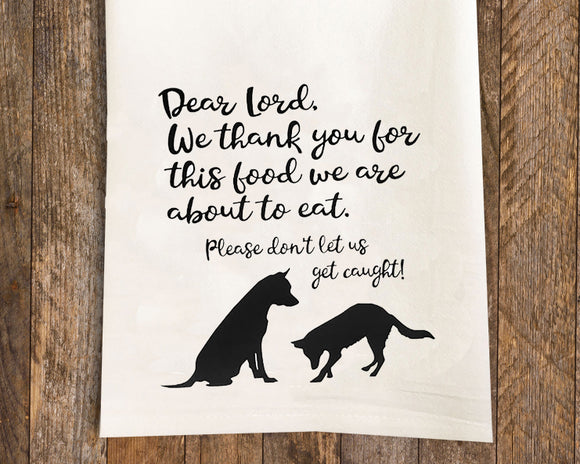 Dear Lord,
We thank you for
this food we are
about to eat.
Please don't let us
get caught!